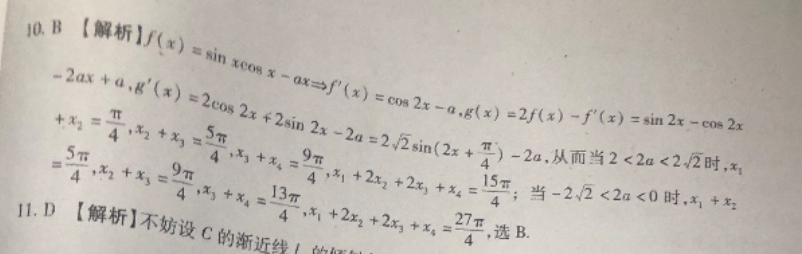 10. B 【解析】f(x) = sin xcos x - ax⇒f'(x) = cos 2x - a, g(x) = 2f(x) - f'(x) = sin 2x - cos 2x
- 2ax + a, g'(x) = 2cos 2x + 2sin 2x - 2a = 2√2sin(2x + π/4) - 2a, 从而当 2 < 2a < 2√2时, x₁
+ x₂ = π/4, x₂ + x₃ = 5π/4, x₃ + x₄ = 9π/4, x₁ + 2x₂ + 2x₃ + x₄ = 15π/4; 当 -2√2 < 2a < 0 时, x₁ + x₂
= 5π/4, x₂ + x₃ = 9π/4, x₃ + x₄ = 13π/4, x₁ + 2x₂ + 2x₃ + x₄ = 27π/4, 选 B.
11. D 【解析】不妨设 C 的渐近线 l 的倾